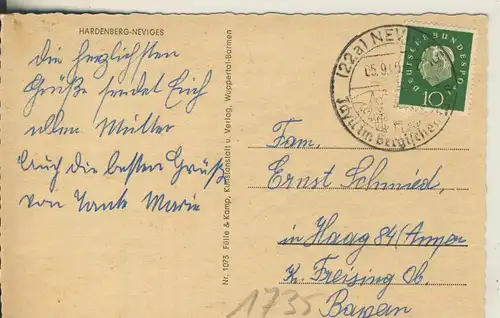 HARDENBERG-NEVIGES
die herzlichsten
Grüße sendet Euch
allen Mutter
Auch die besten Grüße
von Tante Marie
Nr. 1073 Fülle & Kamp, Kunstanstalt u. Verlag, Wuppertal-Barmen
(22a) NEVIGES
Idyll im Bergischen
DEUTSCHE BUNDESPOST
10
Fam.
Ernst Schmied,
in Haag 84/Amper
Kr. Freising Ob.
Bayern
1735